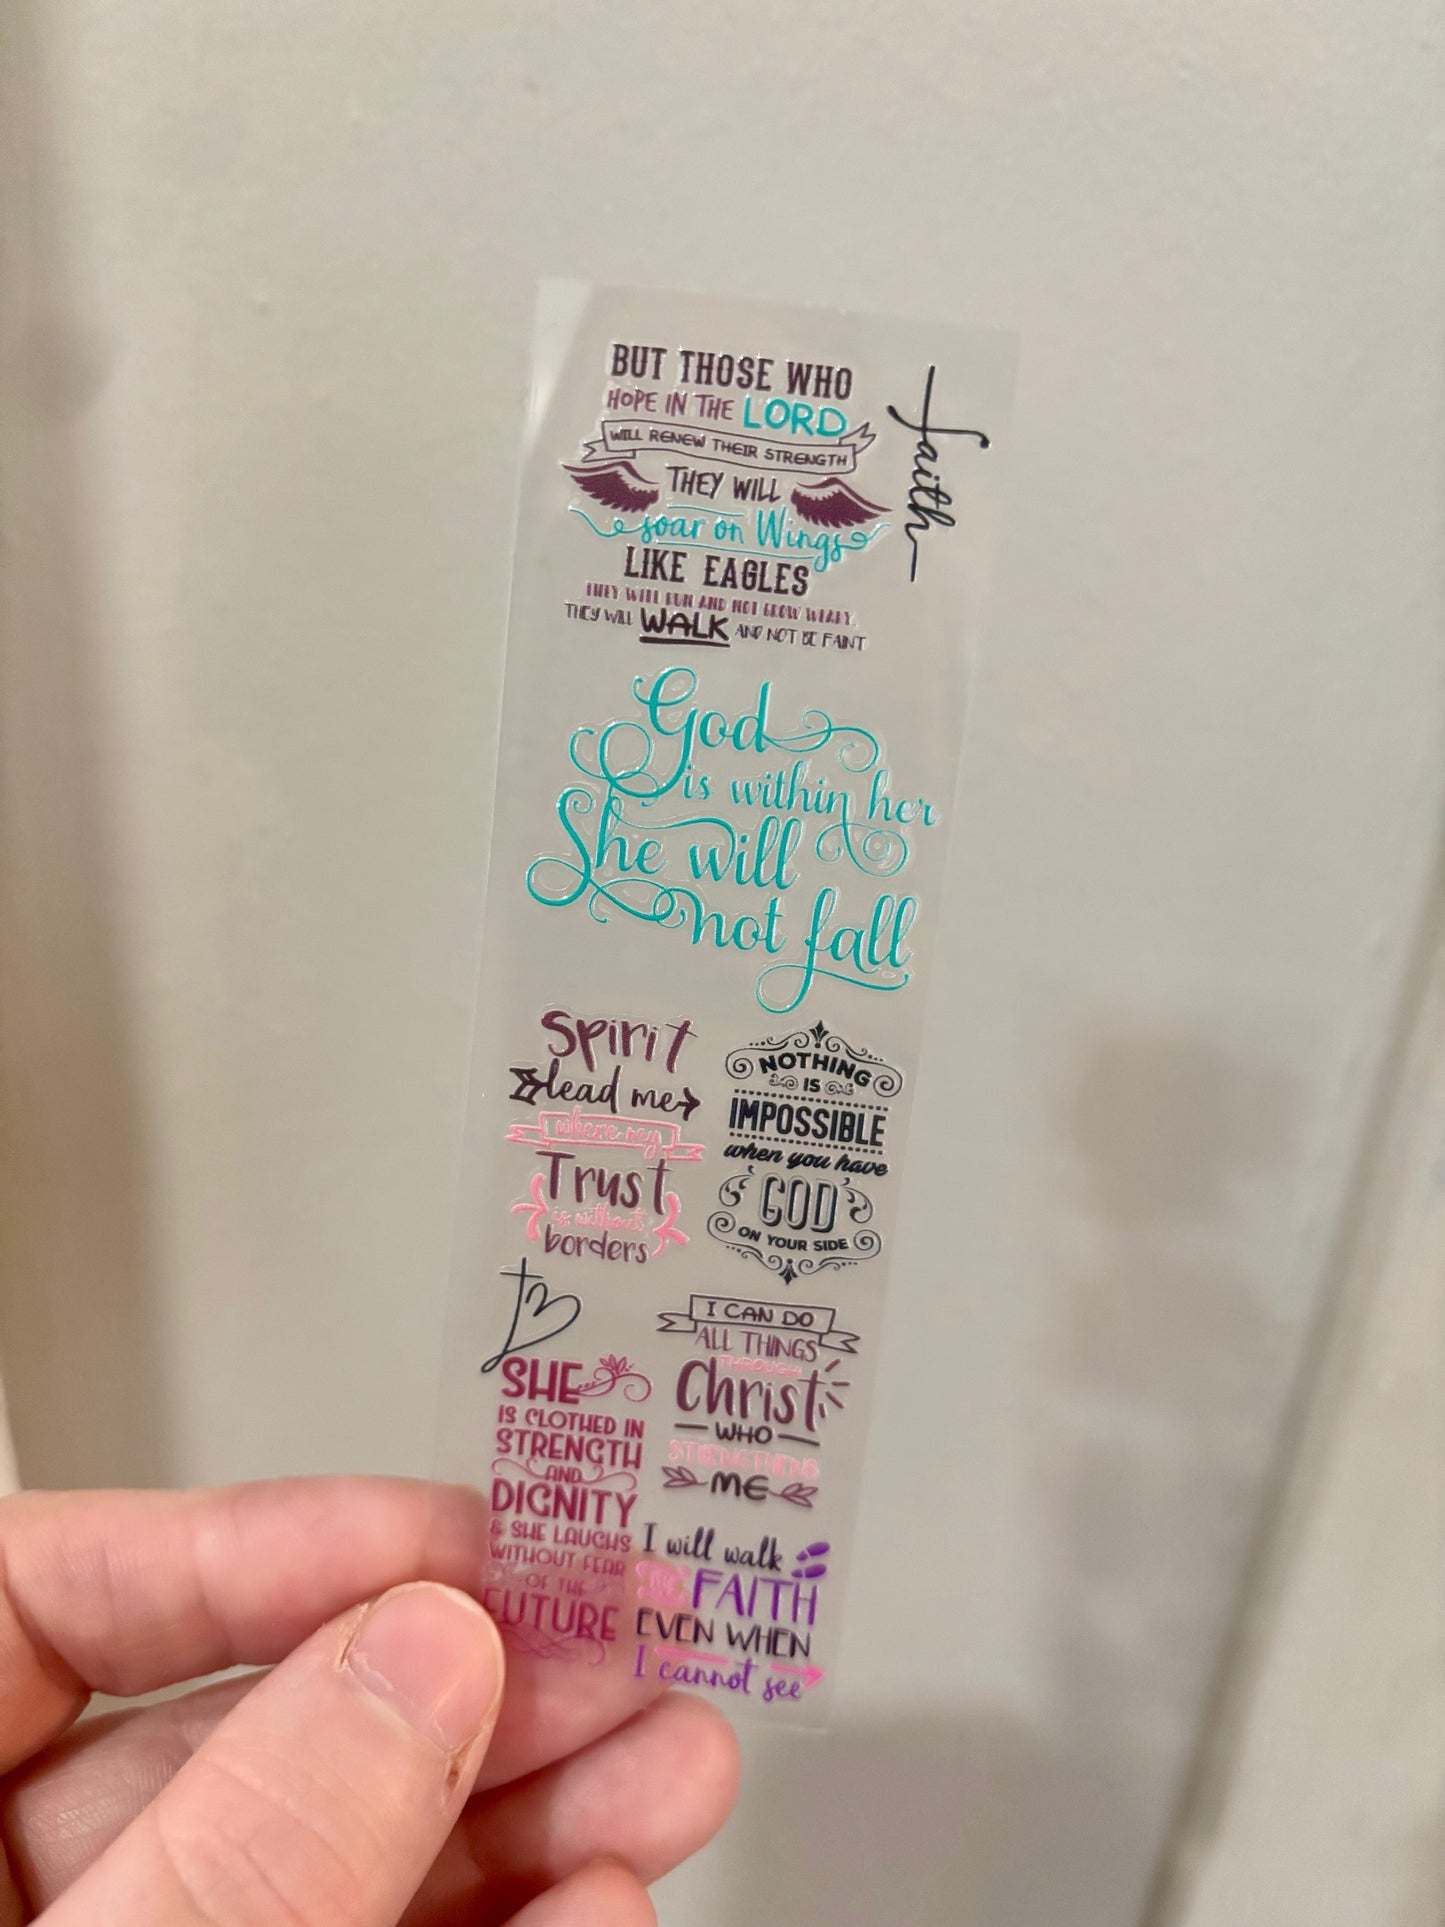 BUT THOSE WHO
HOPE IN THE LORD
WILL RENEW THEIR STRENGTH
THEY WILL
soar on Wings
LIKE EAGLES
THEY WILL RUN AND NOT GROW WEARY.
THEY WILL WALK AND NOT BE FAINT
faith
God
is within her
She will
not fall
Spirit
lead me
where my
Trust
is without
borders
NOTHING
IS
IMPOSSIBLE
when you have
GOD
ON YOUR SIDE
SHE
IS CLOTHED IN
STRENGTH
AND
DIGNITY
& SHE LAUGHS
WITHOUT FEAR
OF THE
FUTURE
I CAN DO
ALL THINGS
THROUGH
Christ
WHO
STRENGTHENS
ME
I will walk
BY FAITH
EVEN WHEN
I cannot see